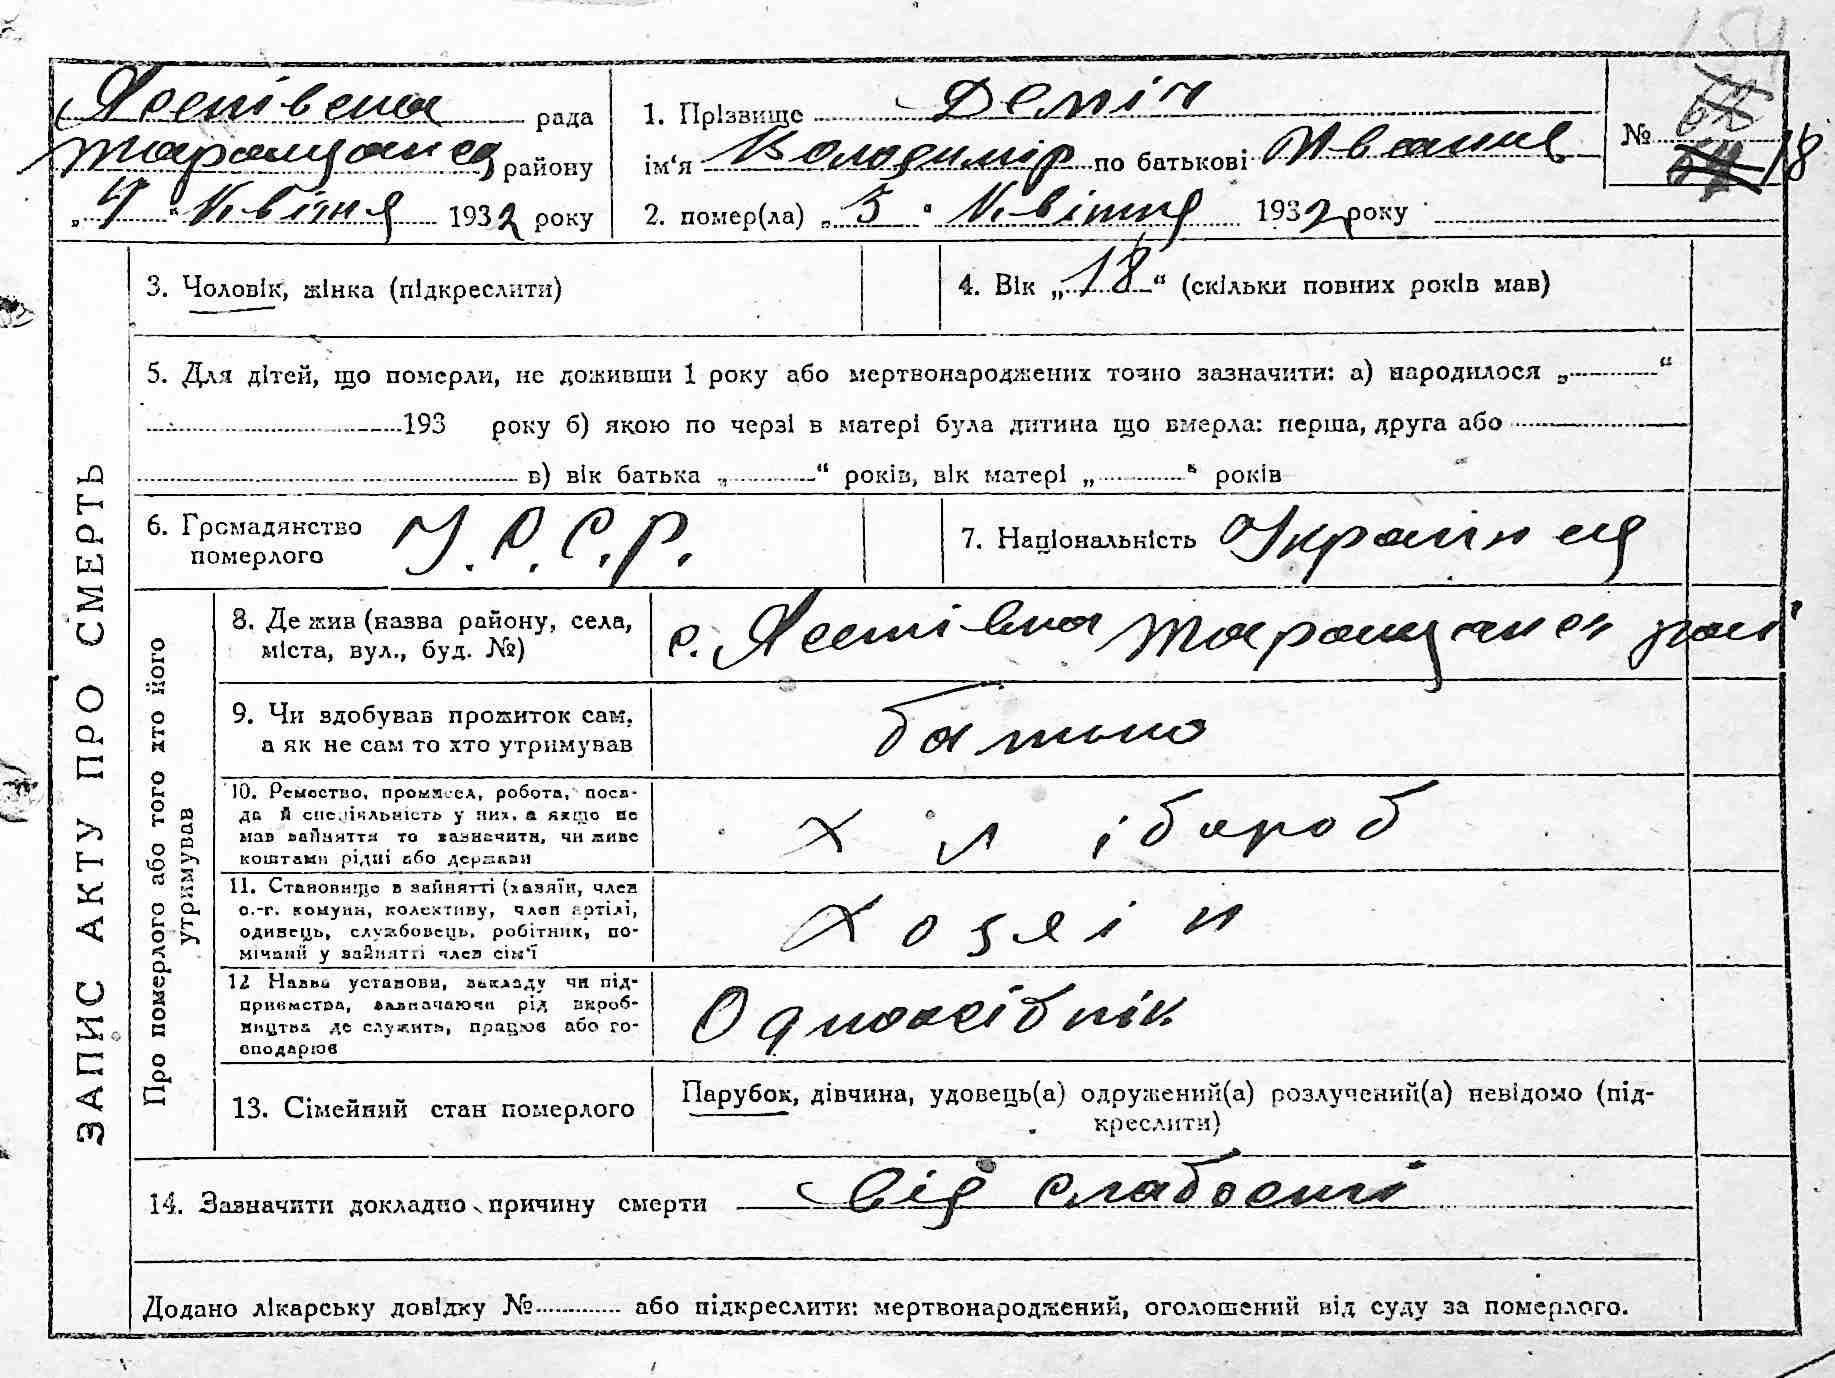 Лєсівська рада
Таращанськ району
„4“ Квітня 1932 року
1. Прізвище Деміч
ім‘я Володимір по батькові Иванов
2. помер(ла) „3“ Квітня 1932 року
№ 18
ЗАПИС АКТУ ПРО СМЕРТЬ
3. Чоловік, жінка (підкреслити)
4. Вік „18“ (скільки повних років мав)
5. Для дітей, що померли, не доживши 1 року або мертвонароджених точно зазначити: а) народилося „ “
193 року б) якою по черзі в матері була дитина що вмерла: перша, друга або
в) вік батька „ “ років, вік матері „ “ років
6. Громадянство
померлого
У.С.С.Р.
7. Національність Українец
Про померлого або того хто його
утримував
8. Де жив (назва району, села,
міста, вул., буд. №)
с. Таращанськ рай
9. Чи вдобував прожиток сам,
а як не сам то хто утримував
батько
10. Ремество, промисел, робота, поса-
да й спеціяльність у них, а якщо не
мав зайняття то зазначити, чи живе
коштами рідні або держави
хлібороб
11. Становище в зайнятті (хазяїн, член
с.-г. комуни, колективу, член артілі,
одинець, службовець, робітник, по-
мічний у зайнятті член сім‘ї
хозяін
12 Назва установи, закладу чи під-
приємства, зазначаючи рід вироб-
ництва де служить, працює або го-
сподарює
Одноосібнік
13. Сімейний стан померлого
Парубок, дівчина, удовець(а) одружений(а) розлучений(а) невідомо (під-
креслити)
14. Зазначити докладно причину смерти від слабості
Додано лікарську довідку № або підкреслити: мертвонароджений, оголошений від суду за померлого.